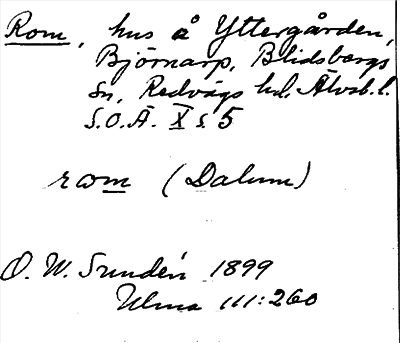 Rom, hus å Yttergården,
Björnarp, Blidsbergs
sn, Redvägs hd, Älvsb. l.
S.O.Ä. X s. 5
rom (Dalum)
O. W. Sundén 1899
Ulma 111:260